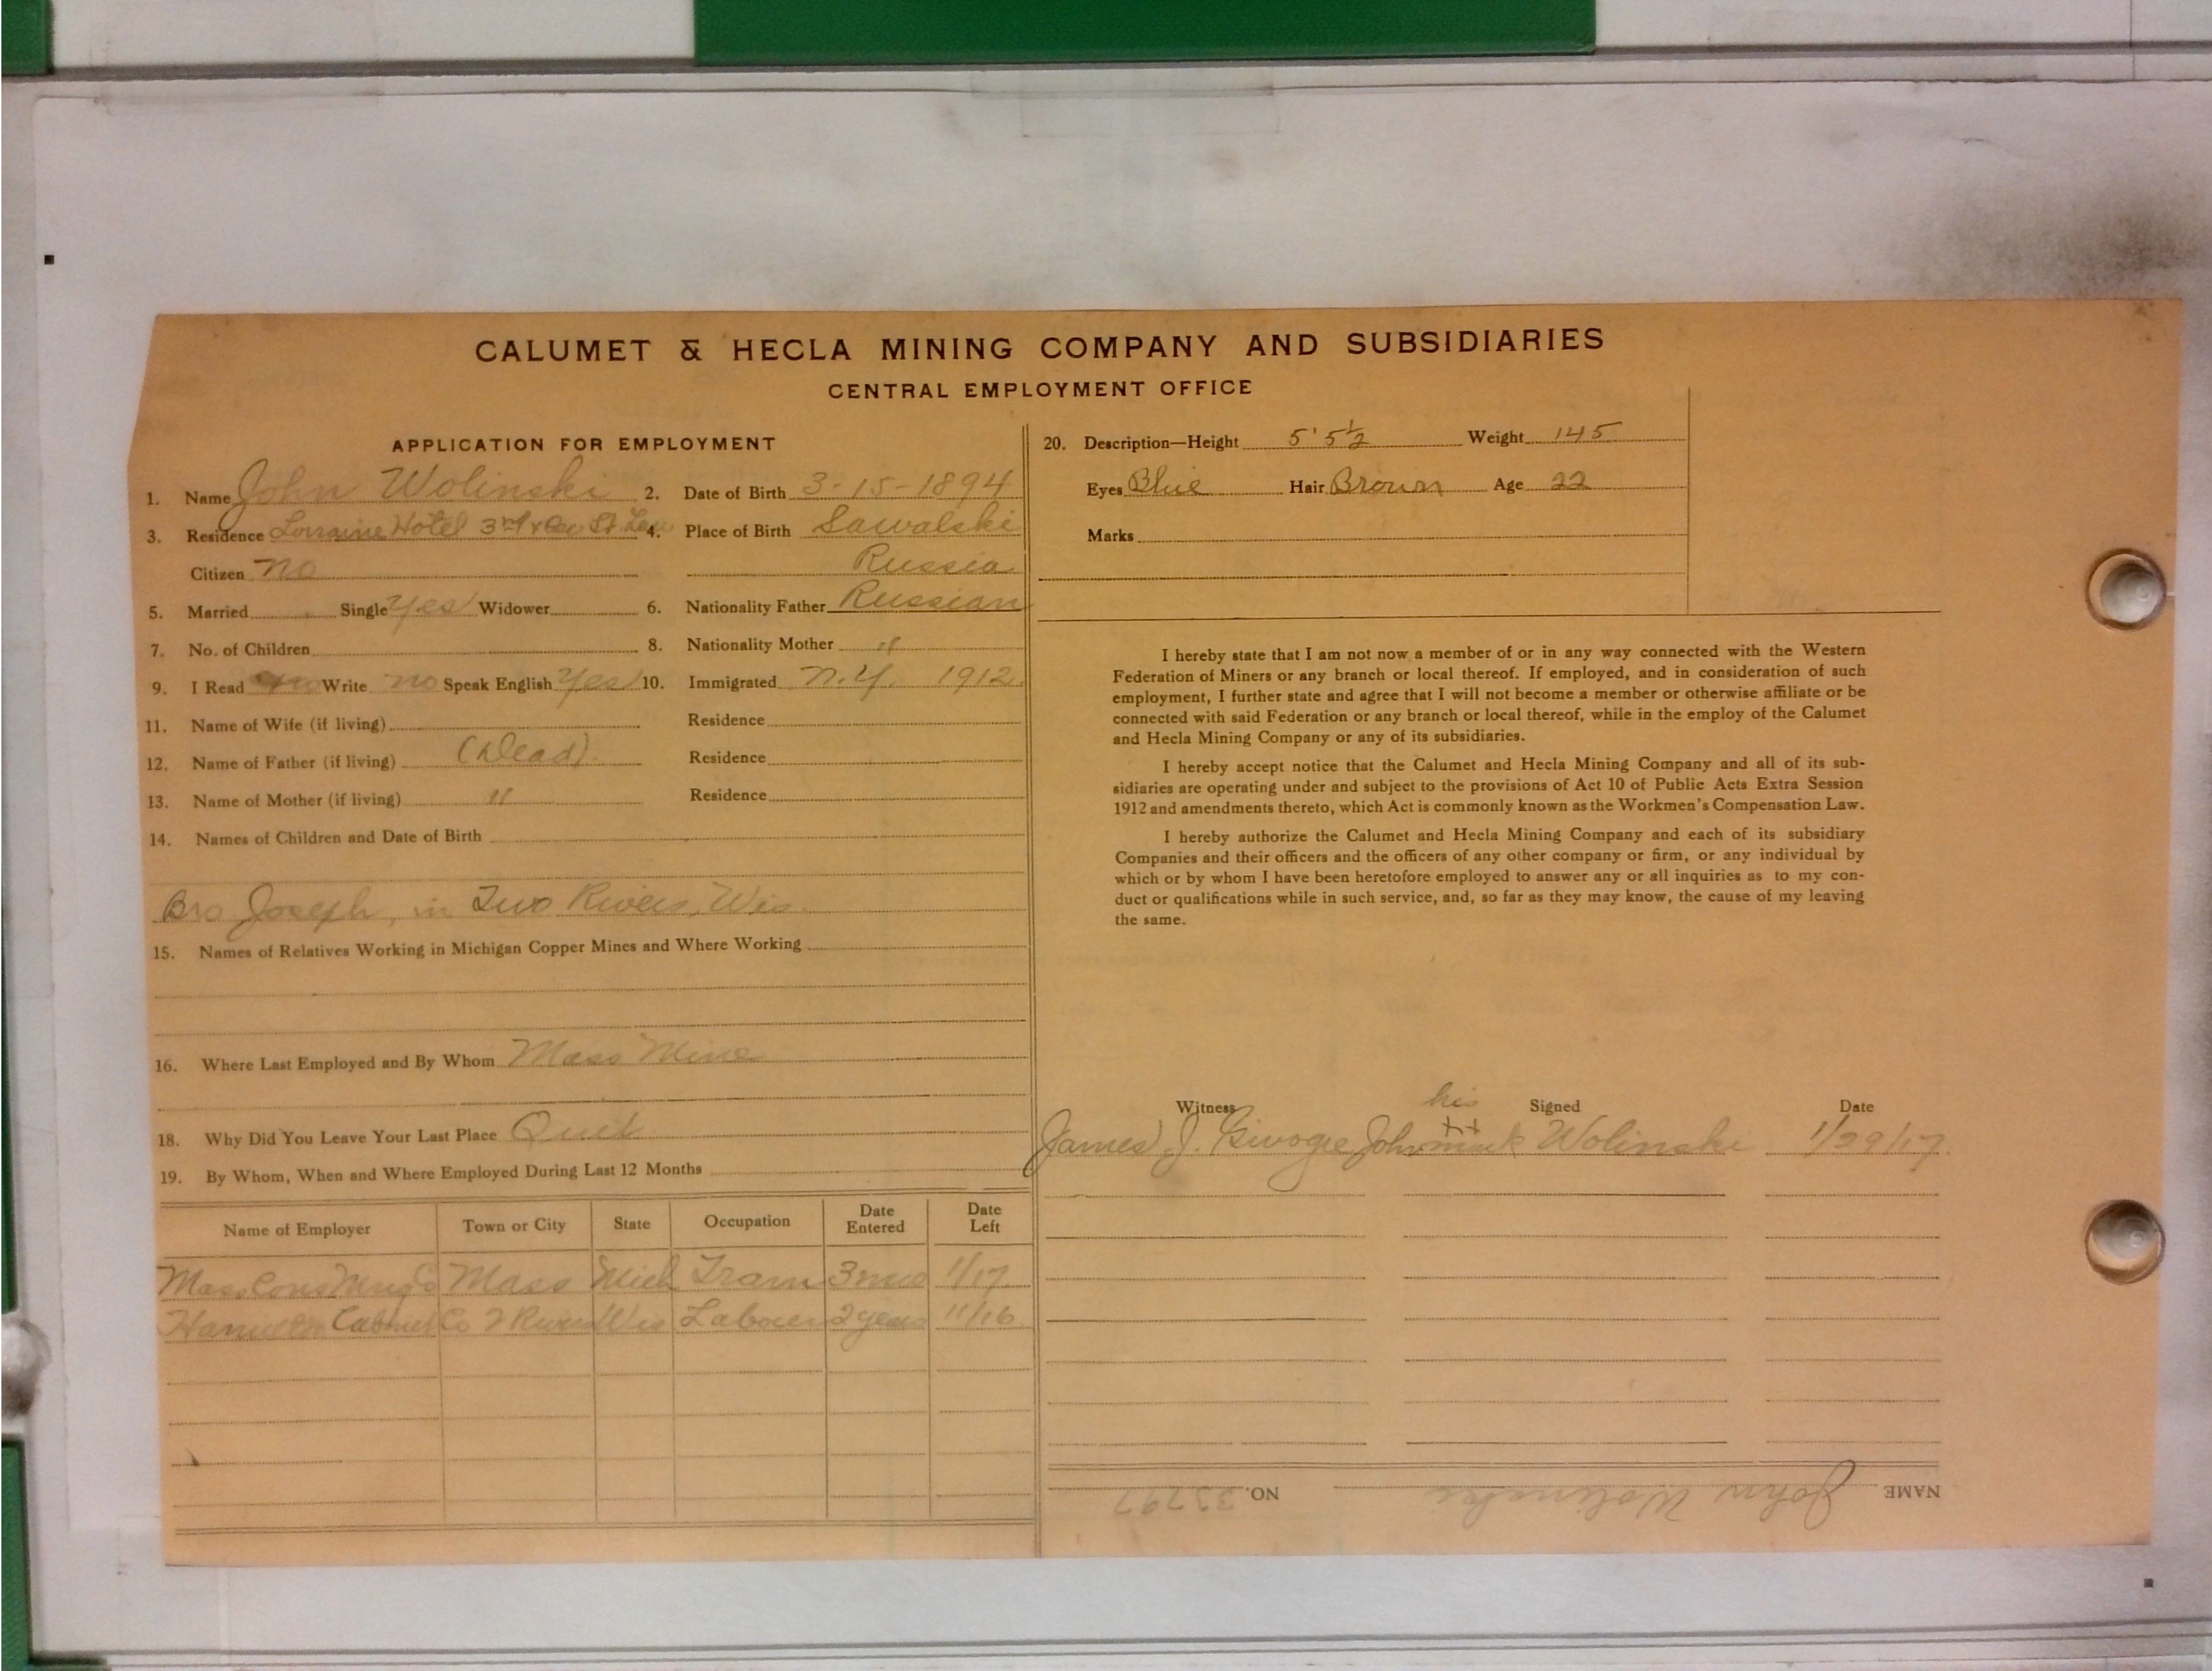 CALUMET & HECLA MINING COMPANY AND SUBSIDIARIES
CENTRAL EMPLOYMENT OFFICE
APPLICATION FOR EMPLOYMENT
1. Name John Wolinski 2. Date of Birth 3-15-1894
3. Residence Lorraine Hotel 3rd St. 4. Place of Birth Sawalski
Citizen no Russia
5. Married Single Yes Widower 6. Nationality Father Russian
7. No. of Children 8. Nationality Mother "
9. I Read no Write no Speak English Yes 10. Immigrated N.Y. 1912
11. Name of Wife (if living) Residence
12. Name of Father (if living) (Dead) Residence
13. Name of Mother (if living) " Residence
14. Names of Children and Date of Birth
Bro Joseph, in Two Rivers, Wis.
15. Names of Relatives Working in Michigan Copper Mines and Where Working
16. Where Last Employed and By Whom Mass Mine
18. Why Did You Leave Your Last Place Quit
19. By Whom, When and Where Employed During Last 12 Months
Name of Employer Town or City State Occupation Date Entered Date Left
Mass Cons Mng Co Mass Mich Tram 3 mos 1/17
Hamilton Cabinet Co 2 Rivers Wis Laborer 2 years 11/16
20. Description—Height 5' 5½ Weight 145
Eyes Blue Hair Brown Age 22
Marks
I hereby state that I am not now a member of or in any way connected with the Western
Federation of Miners or any branch or local thereof. If employed, and in consideration of such
employment, I further state and agree that I will not become a member or otherwise affiliate or be
connected with said Federation or any branch or local thereof, while in the employ of the Calumet
and Hecla Mining Company or any of its subsidiaries.
I hereby accept notice that the Calumet and Hecla Mining Company and all of its sub-
sidiaries are operating under and subject to the provisions of Act 10 of Public Acts Extra Session
1912 and amendments thereto, which Act is commonly known as the Workmen's Compensation Law.
I hereby authorize the Calumet and Hecla Mining Company and each of its subsidiary
Companies and their officers and the officers of any other company or firm, or any individual by
which or by whom I have been heretofore employed to answer any or all inquiries as to my con-
duct or qualifications while in such service, and, so far as they may know, the cause of my leaving
the same.
Witness Signed Date
his
James J. John xx mark Wolinski 1/29/17
NAME John Wolinski NO. 33797